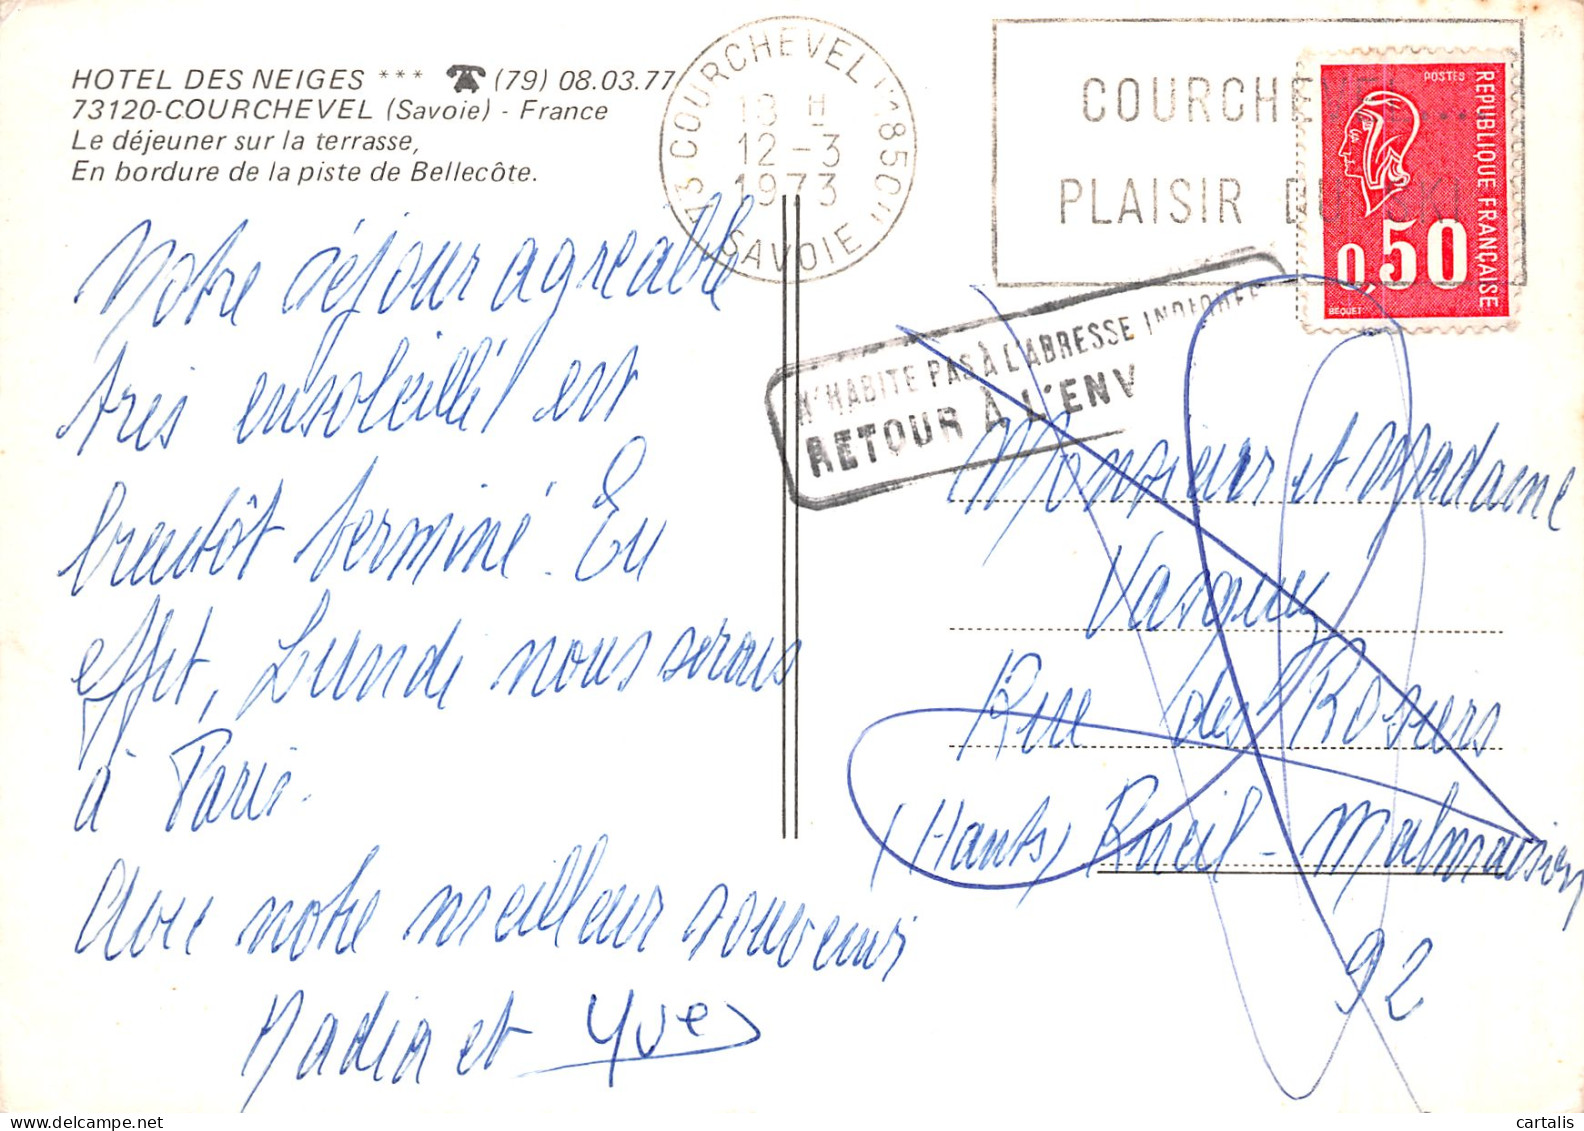 HOTEL DES NEIGES *** (79) 08.03.77
73120-COURCHEVEL (Savoie) - France
Le déjeuner sur la terrasse,
En bordure de la piste de Bellecôte.
73 COURCHEVEL 1850
12 -3
1973
SAVOIE
COURCHEVEL...
PLAISIR DU SKI
POSTES
REPUBLIQUE FRANÇAISE
0,50
BEQUET
N'HABITE PAS À L'ADRESSE INDIQUÉE
RETOUR À L'ENV
Notre séjour agréable
très ensoleillé est
bientôt terminé. En
effet, Lundi nous serons
à Paris.
Avec notre meilleur souvenir
Nadia et Yves
Monsieur et Madame
Rue des Rosiers
(Hauts) Rueil-Malmaison
92
cartalis